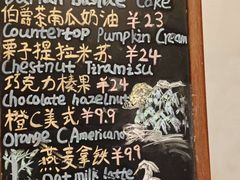 Cake
伯爵茶南瓜奶油 ¥23
Countertop Pumpkin Cream
栗子提拉米苏 ¥24
Chestnut Tiramisu
巧克力榛果 ¥24
chocolate hazelnut
橙C美式 ¥9.9
Orange C Americano
燕麦拿铁 ¥9.9
Oat milk latte